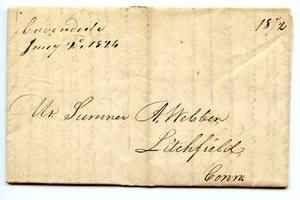 Cavendish
Jany 2d 1824
18 1/2
Mr. Sumner A. Webber
Litchfield,
Conn